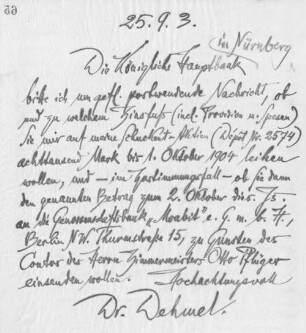 65
25.9.3.
Die Königliche Hauptbank in Nürnberg
bitte ich um gefl. postwendende Nachricht, ob
und zu welchem Zinsfuss (incl. Provision u. Spesen)
Sie mir auf meine Schuckert-Aktien (Depot Nr. 2574)
achttausend Mark bis 1. Oktober 1904 leihen
wollen, und – im Zustimmungsfall – ob Sie dann
den genannten Betrag zum 2. Oktober dis. Js.
an die Genossenschaftsbank „Moabit" e. G. m. b. H.,
Berlin N.W. Thurmstraße 15, zu Gunsten des
Contos des Herrn Zimmermeisters Otto Pflüger
einsenden wollen. Hochachtungsvoll
Dr. Dehmel.